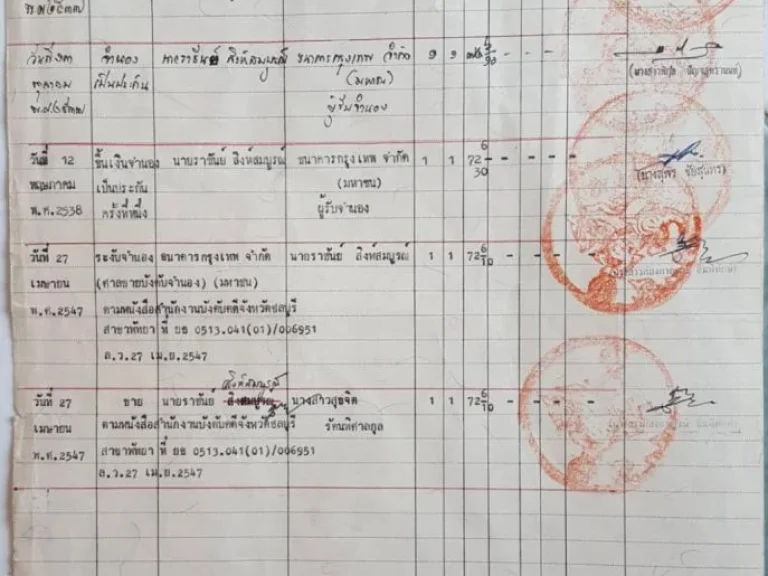 พ.ศ.๒๕๓๗
วันที่ ๓๑ จำนอง นายราชันย์ สิงห์สมบูรณ์ ธนาคารกรุงเทพ จำกัด ๑ ๑ - - -
ตุลาคม เป็นประกัน (มหาชน)
พ.ศ.๒๕๓๗ ผู้รับจำนอง
วันที่ 12 ขึ้นเงินจำนอง นายราชันย์ สิงห์สมบูรณ์ ธนาคารกรุงเทพ จำกัด 1 1 72 6/30 - - - -
พฤษภาคม เป็นประกัน (มหาชน)
พ.ศ.2538 ครั้งที่หนึ่ง ผู้รับจำนอง
วันที่ 27 ระงับจำนอง ธนาคารกรุงเทพ จำกัด นายราชันย์ สิงห์สมบูรณ์ 1 1 72 6/10 - - - -
เมษายน (ศาลขายบังคับจำนอง) (มหาชน)
พ.ศ.2547 ตามหนังสือสำนักงานบังคับคดีจังหวัดชลบุรี
สาขาพัทยา ที่ ยธ 0513.041(01)/006951
ล.ว.27 เม.ย.2547
สิงห์สมบูรณ์
วันที่ 27 ขาย นายราชันย์ สิงสมบูรณ์ นางสาวสุขจิต 1 1 72 6/10 - - - -
เมษายน ตามหนังสือสำนักงานบังคับคดีจังหวัดชลบุรี รัตนพิศาลกูล
พ.ศ.2547 สาขาพัทยา ที่ ยธ 0513.041(01)/006951
ล.ว.27 เม.ย.2547